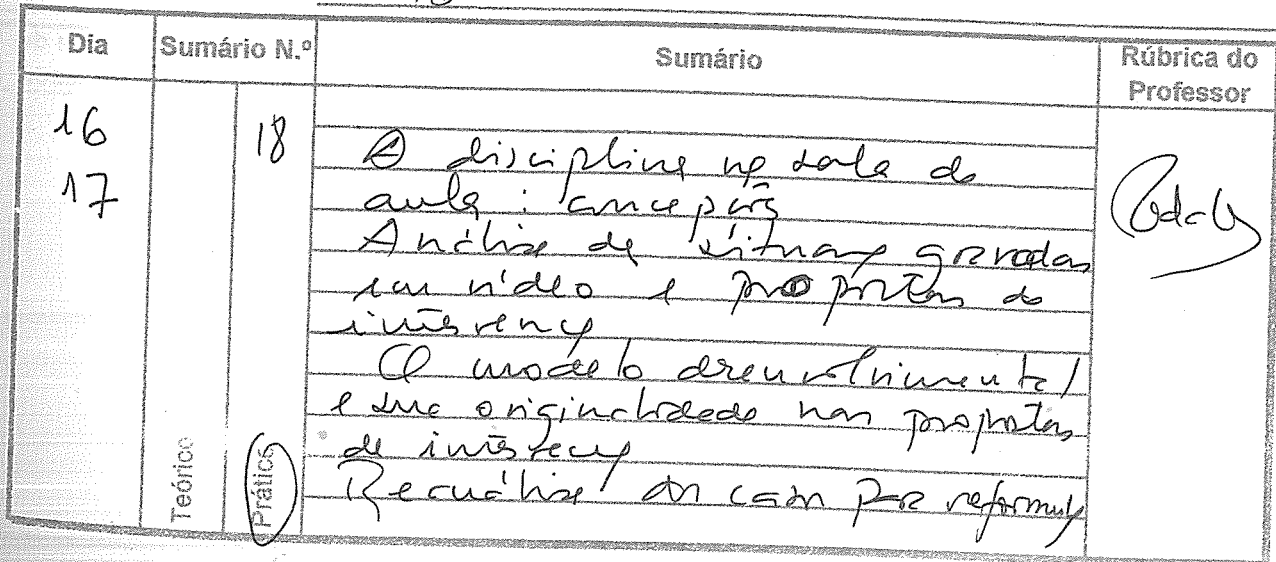 Dia Sumário N.º Sumário Rúbrica do Professor
16 18
17
A disciplina na sala de
aula: concepções
Análise de situações gravadas
em vídeo e propostas de
intervenção
O modelo desenvolvimental
e sua originalidade nas propostas
de intervenção
Reanálise dos casos
Teórico
Prático